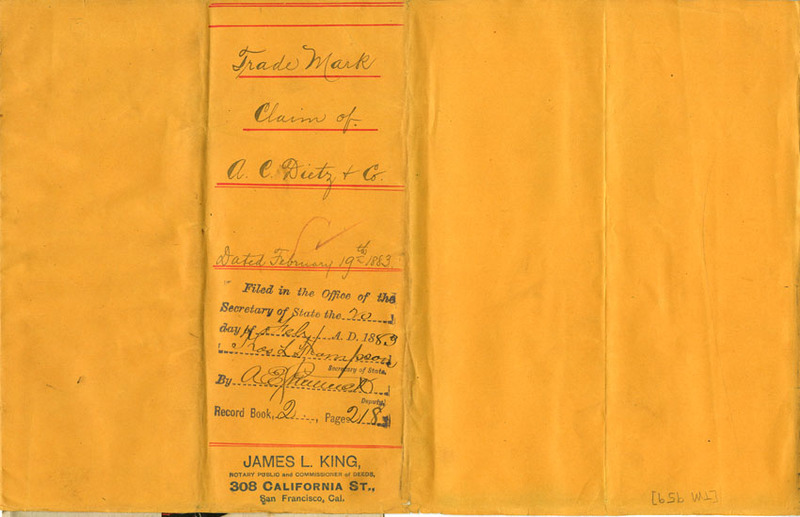 Trade Mark
Claim of
A. C. Dietz & Co.
Dated February 19th 1883
Filed in the Office of the
Secretary of State the 20
day of Feby A. D. 1883
Thos L Thompson
Secretary of State.
By A E
Deputy
Record Book, 2, Page 218
JAMES L. KING,
NOTARY PUBLIC and COMMISSIONER of DEEDS,
308 CALIFORNIA ST.,
San Francisco, Cal.
[TM 959]